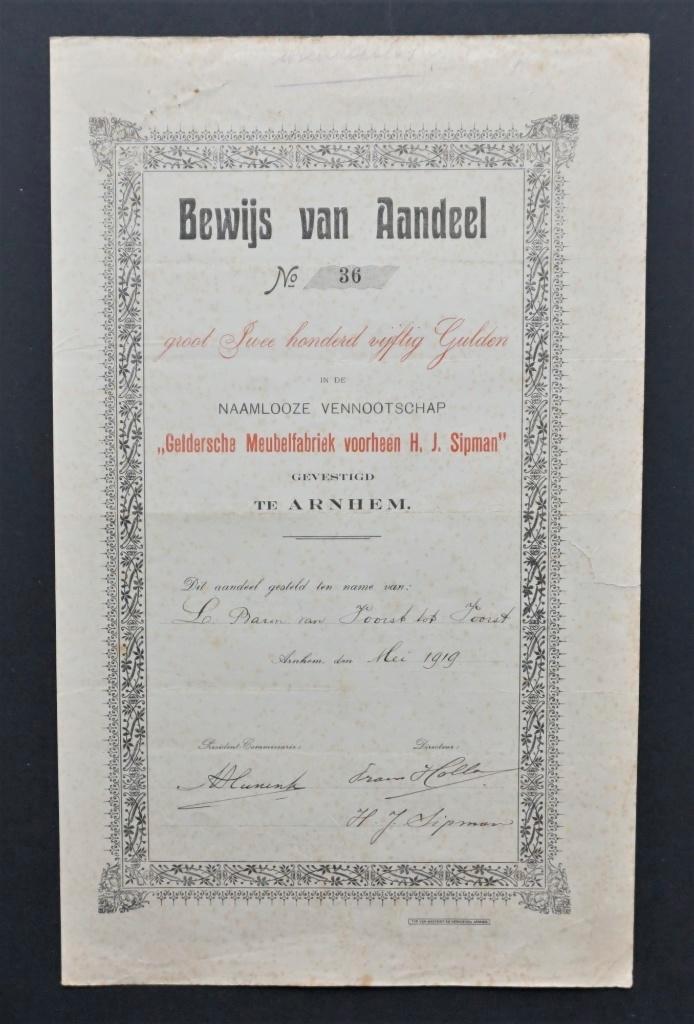 Bewijs van Aandeel
No 36
groot Twee honderd vijftig Gulden
IN DE
NAAMLOOZE VENNOOTSCHAP
„Geldersche Meubelfabriek voorheen H. J. Sipman"
GEVESTIGD
TE ARNHEM.
Dit aandeel gesteld ten name van:
L. Baron van Voorst tot Voorst
Arnhem, den Mei 1919
President-Commissaris: Directeur:
Frans Holla
H J Sipman